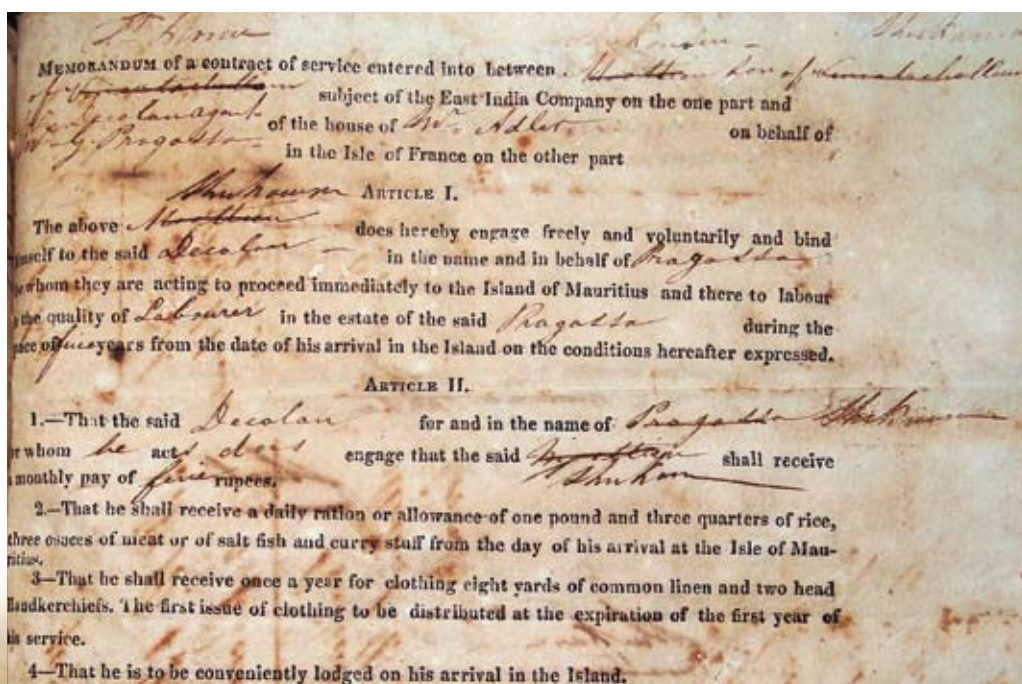 MEMORANDUM of a contract of service entered into between. son of
of subject of the East India Company on the one part and
agent of the house of Mr. Adlet on behalf of
in the Isle of France on the other part
ARTICLE I.
The above does hereby engage freely and voluntarily and bind
himself to the said Decolan in the name and in behalf of Pragassa
whom they are acting to proceed immediately to the Island of Mauritius and there to labour
the quality of Labourer in the estate of the said Pragassa during the
of five years from the date of his arrival in the Island on the conditions hereafter expressed.
ARTICLE II.
1.—That the said Decolan for and in the name of Pragassa
whom he acts does engage that the said shall receive
monthly pay of five rupees.
2.—That he shall receive a daily ration or allowance of one pound and three quarters of rice,
three ounces of meat or of salt fish and curry stuff from the day of his arrival at the Isle of Mau-
ritius.
3—That he shall receive once a year for clothing eight yards of common linen and two head
Handkerchiefs. The first issue of clothing to be distributed at the expiration of the first year of
his service.
4—That he is to be conveniently lodged on his arrival in the Island.